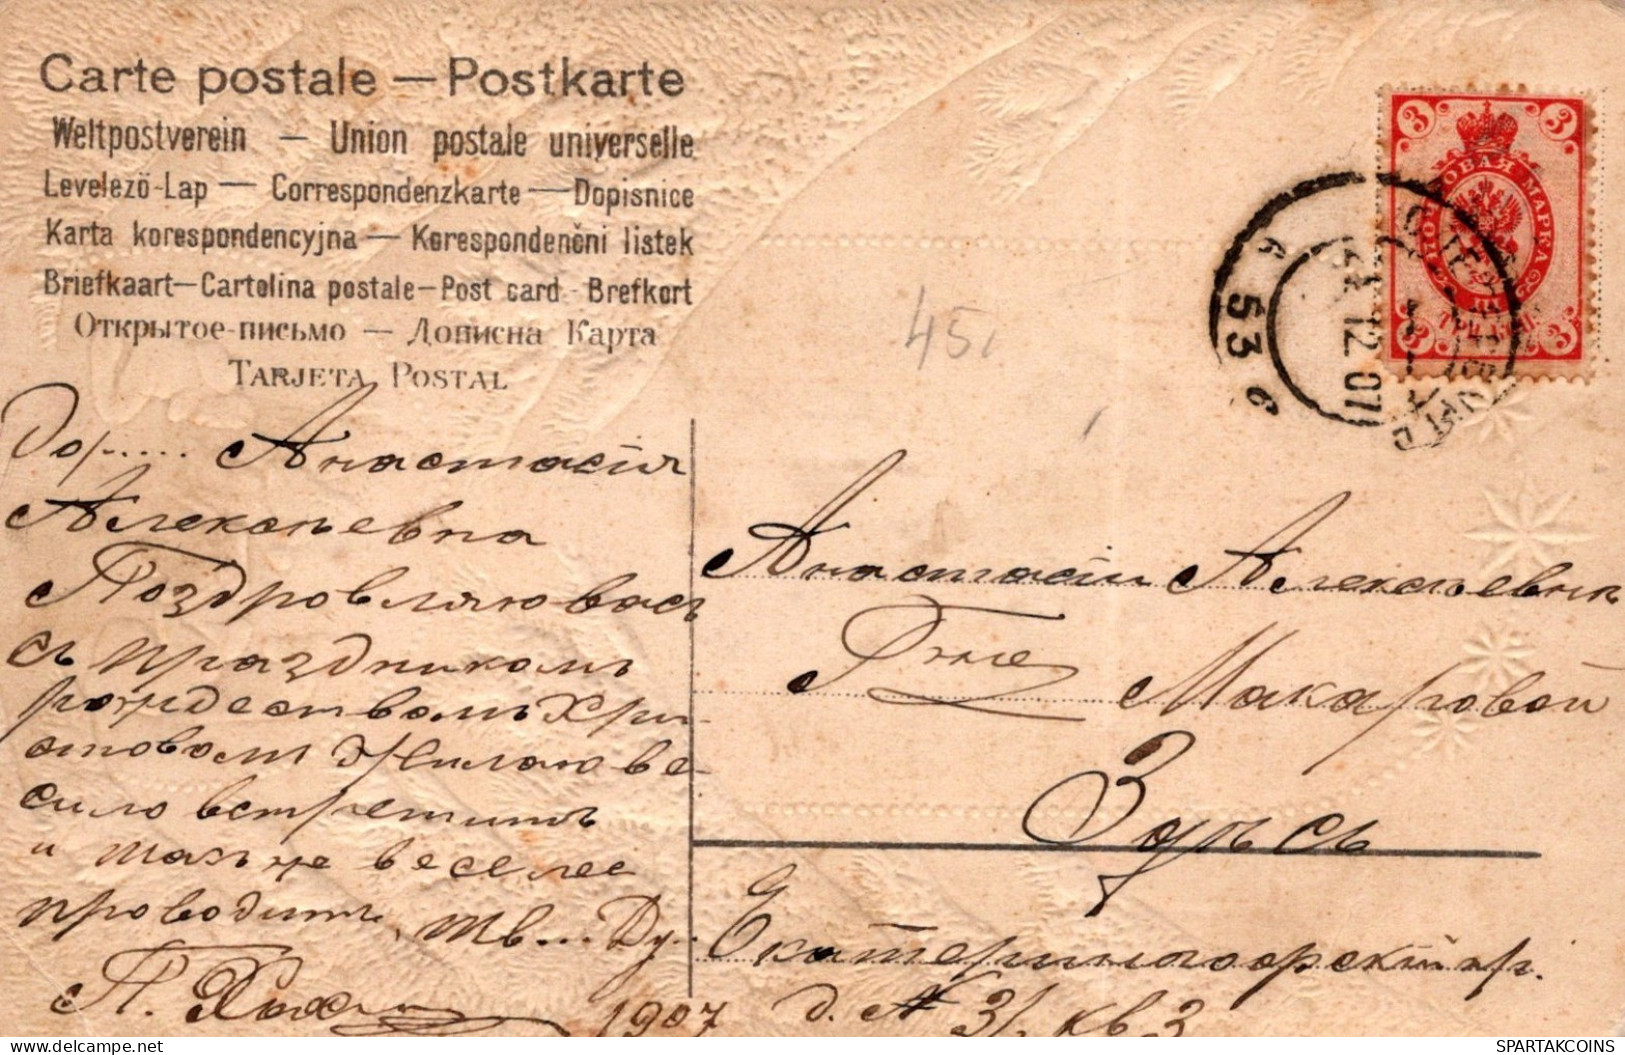 Carte postale — Postkarte
Weltpostverein — Union postale universelle
Levelezö-Lap — Correspondenzkarte — Dopisnice
Karta korespondencyjna — Korespondenčni listek
Briefkaart — Cartolina postale — Post card - Brefkort
Открытое-письмо — Дописна Карта
TARJETA POSTAL
3 3
ПОЧТОВАЯ МАРКА
3 3
6 53 6
12 07
45
Дор..... Анастасія
Алексѣевна
Поздровляю васъ
съ праздникомъ
рождествомъ Хри-
стовомъ Жилаю ве-
сило встретить
и такъ же веселее
проводить, тв... Др..
П.
1907
Анастасіи Алексѣевнѣ
Г-же Макаровой
Здѣсь
Екатерингофскій пр.
д. № 31. кв 3
SPARTAKCOINS
delcampe.net